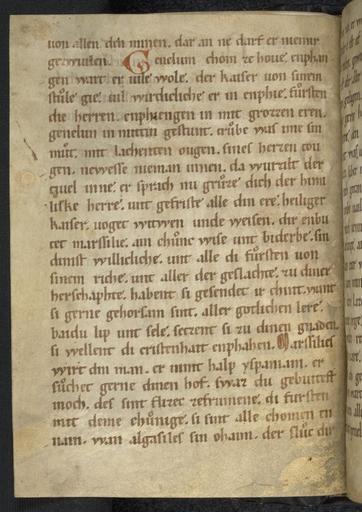 uon allen den minen. dar an ne darf er niemir
gezwiuelen. Genelun chom ze houe. enphan
gen wart er uile wole. der kaiser uon sinem
stůle gie. uil wirdicliche er in enphie. fůrsten
die herren. enphiengen in mit grozzen eren.
genelun in mittin gestunt. trůbe was ime sin
můt. mit lachenten ougen. sines herzen tou
gen. newesse nieman innen. da wurzilt der
tiuel inne. er sprach nu grůze dich der himi
liske herre. unt gefriste alle din ere. heiliger
kaiser. uoget witwen unde weisen. dir enbu
tet marssilie. ain chůnc wise unt biderbe. sin
dinist willicliche. unt alle di fůrsten uon
sinem riche. unt aller der geslachte. zu diner
herschaphte. habent si gesendet ir chint. want
si gerne gehorsam sint. aller gotlichen lere.
baidu lip unt sele. sezzent si zu dinen gnaden
si wellent di cristenhait enphahen. Marssilies
wirt din man. er nimt halp yspaniam. er
sůchet gerne dinen hof. swaz du gebiutest
ioch. des sint fůrec di fursten
mit deme chůnige. si sint alle chomen in
man. wan algafiles sin ohaim. der slůc die